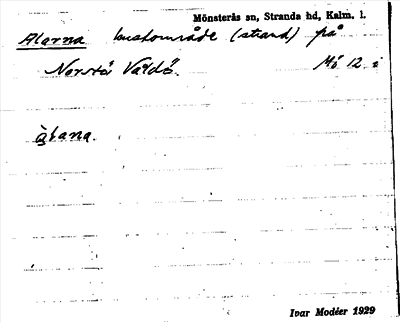 Mönsterås sn, Stranda hd, Kalm. l.
Alarna kustområde (strand) på
Norstö Valdö. Mö 12 i
Ivar Modéer 1929